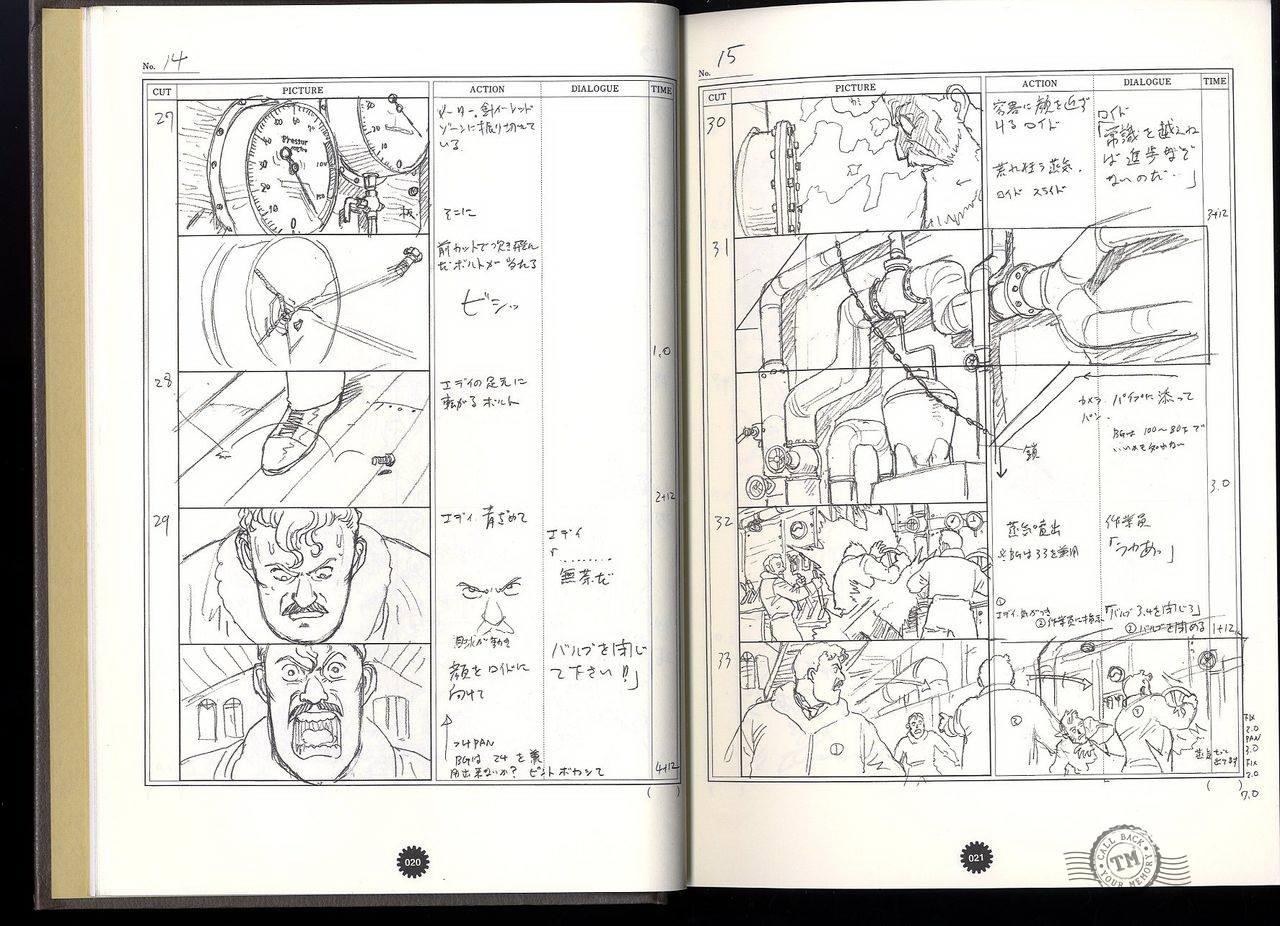 No. 14
CUT
PICTURE
ACTION
DIALOGUE
TIME
27
Pressur
メーター。針イーレッド
ゾーンに振り切れて
いる。
板
そこに
前カットで吹き飛ん
だボルトが当たる
ビシッ
1.0
28
エディの足元に
転がるボルト
2+12
29
エディ 青ざめて
エディ
「‥‥‥‥
無茶だ
顔をロイドに
向けて
バルブを閉じ
て下さい!!」
PAN
BGは 24 を兼
用出来ないか? ピントボカシて
4+12
( )
020
No. 15
CUT
PICTURE
ACTION
DIALOGUE
TIME
30
容器に顔を近ず
けるロイド
荒れ狂う蒸気。
ロイド スライド
ロイド
「常識を越えね
ば進歩など
ないのだ‥」
3+12
31
カメラ パイプに添って
パン.
BGは 100~80まで
鎖
3.0
32
蒸気噴出
※BGは33を兼用
作業員
「うわあっ」
①
エディ気がつき
②作業員に指示
「バルブ3.4を閉じろ」
②バルブを閉める
1+12
33
①
②
①
FIX
2.0
PAN
3.0
FIX
2.0
( )
7.0
021
CALL BACK
TM
YOUR MEMORY